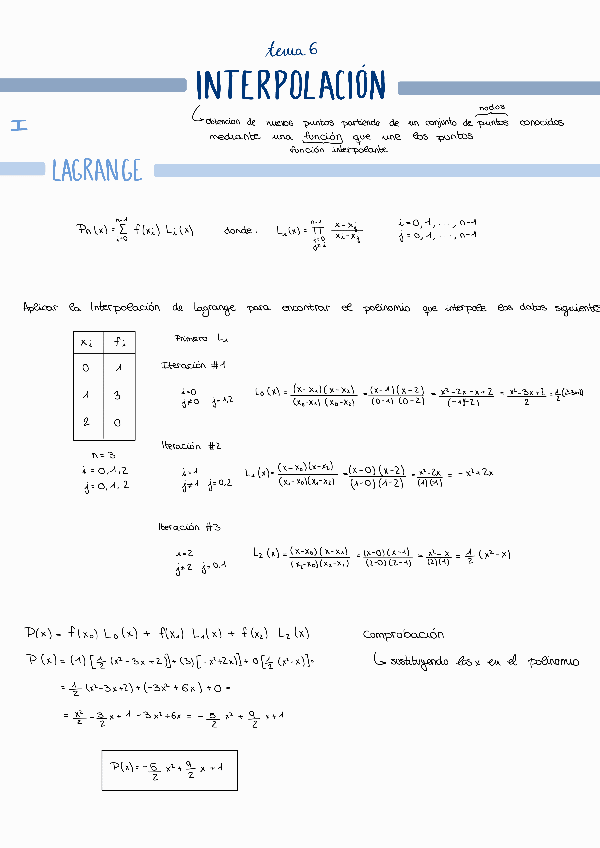 tema 6
INTERPOLACIÓN
nodos
I
Obtención de nuevos puntos partiendo de un conjunto de puntos conocidos
mediante una función que une los puntos
función interpolante
LAGRANGE
Pn(x) = Σ_{i=0}^{n-1} f(xi) Li(x) donde: Li(x) = Π_{j=0, j≠i}^{n-1} (x-xj)/(xi-xj) i=0,1,...,n-1
j=0,1,...,n-1
Aplicar la Interpolación de Lagrange para encontrar el polinomio que interpole los datos siguientes
xi fi
0 1
1 3
2 0
n=3
i=0,1,2
j=0,1,2
Primero Li
Iteración #1
i=0
j≠0 j=1,2
L0(x) = (x-x1)(x-x2)/(x0-x1)(x0-x2) = (x-1)(x-2)/(0-1)(0-2) = x²-2x-x+2/(-1)(-2) = x²-3x+2/2 = 1/2(x²-3x+2)
Iteración #2
i=1
j≠1 j=0,2
L1(x) = (x-x0)(x-x2)/(x1-x0)(x1-x2) = (x-0)(x-2)/(1-0)(1-2) = x²-2x/(1)(1) = -x²+2x
Iteración #3
i=2
j≠2 j=0,1
L2(x) = (x-x0)(x-x1)/(x2-x0)(x2-x1) = (x-0)(x-1)/(2-0)(2-1) = x²-x/(2)(1) = 1/2 (x²-x)
P(x) = f(x0) L0(x) + f(x1) L1(x) + f(x2) L2(x)
P(x) = (1)[1/2 (x²-3x+2)] + (3)[-x²+2x)] + 0[1/2 (x²-x)] =
= 1/2 (x²-3x+2) + (-3x²+6x) + 0 =
= x²/2 - 3/2 x + 1 - 3x² + 6x = - 5/2 x² + 9/2 x + 1
P(x) = - 5/2 x² + 9/2 x + 1
Comprobación
sustituyendo los x en el polinomio